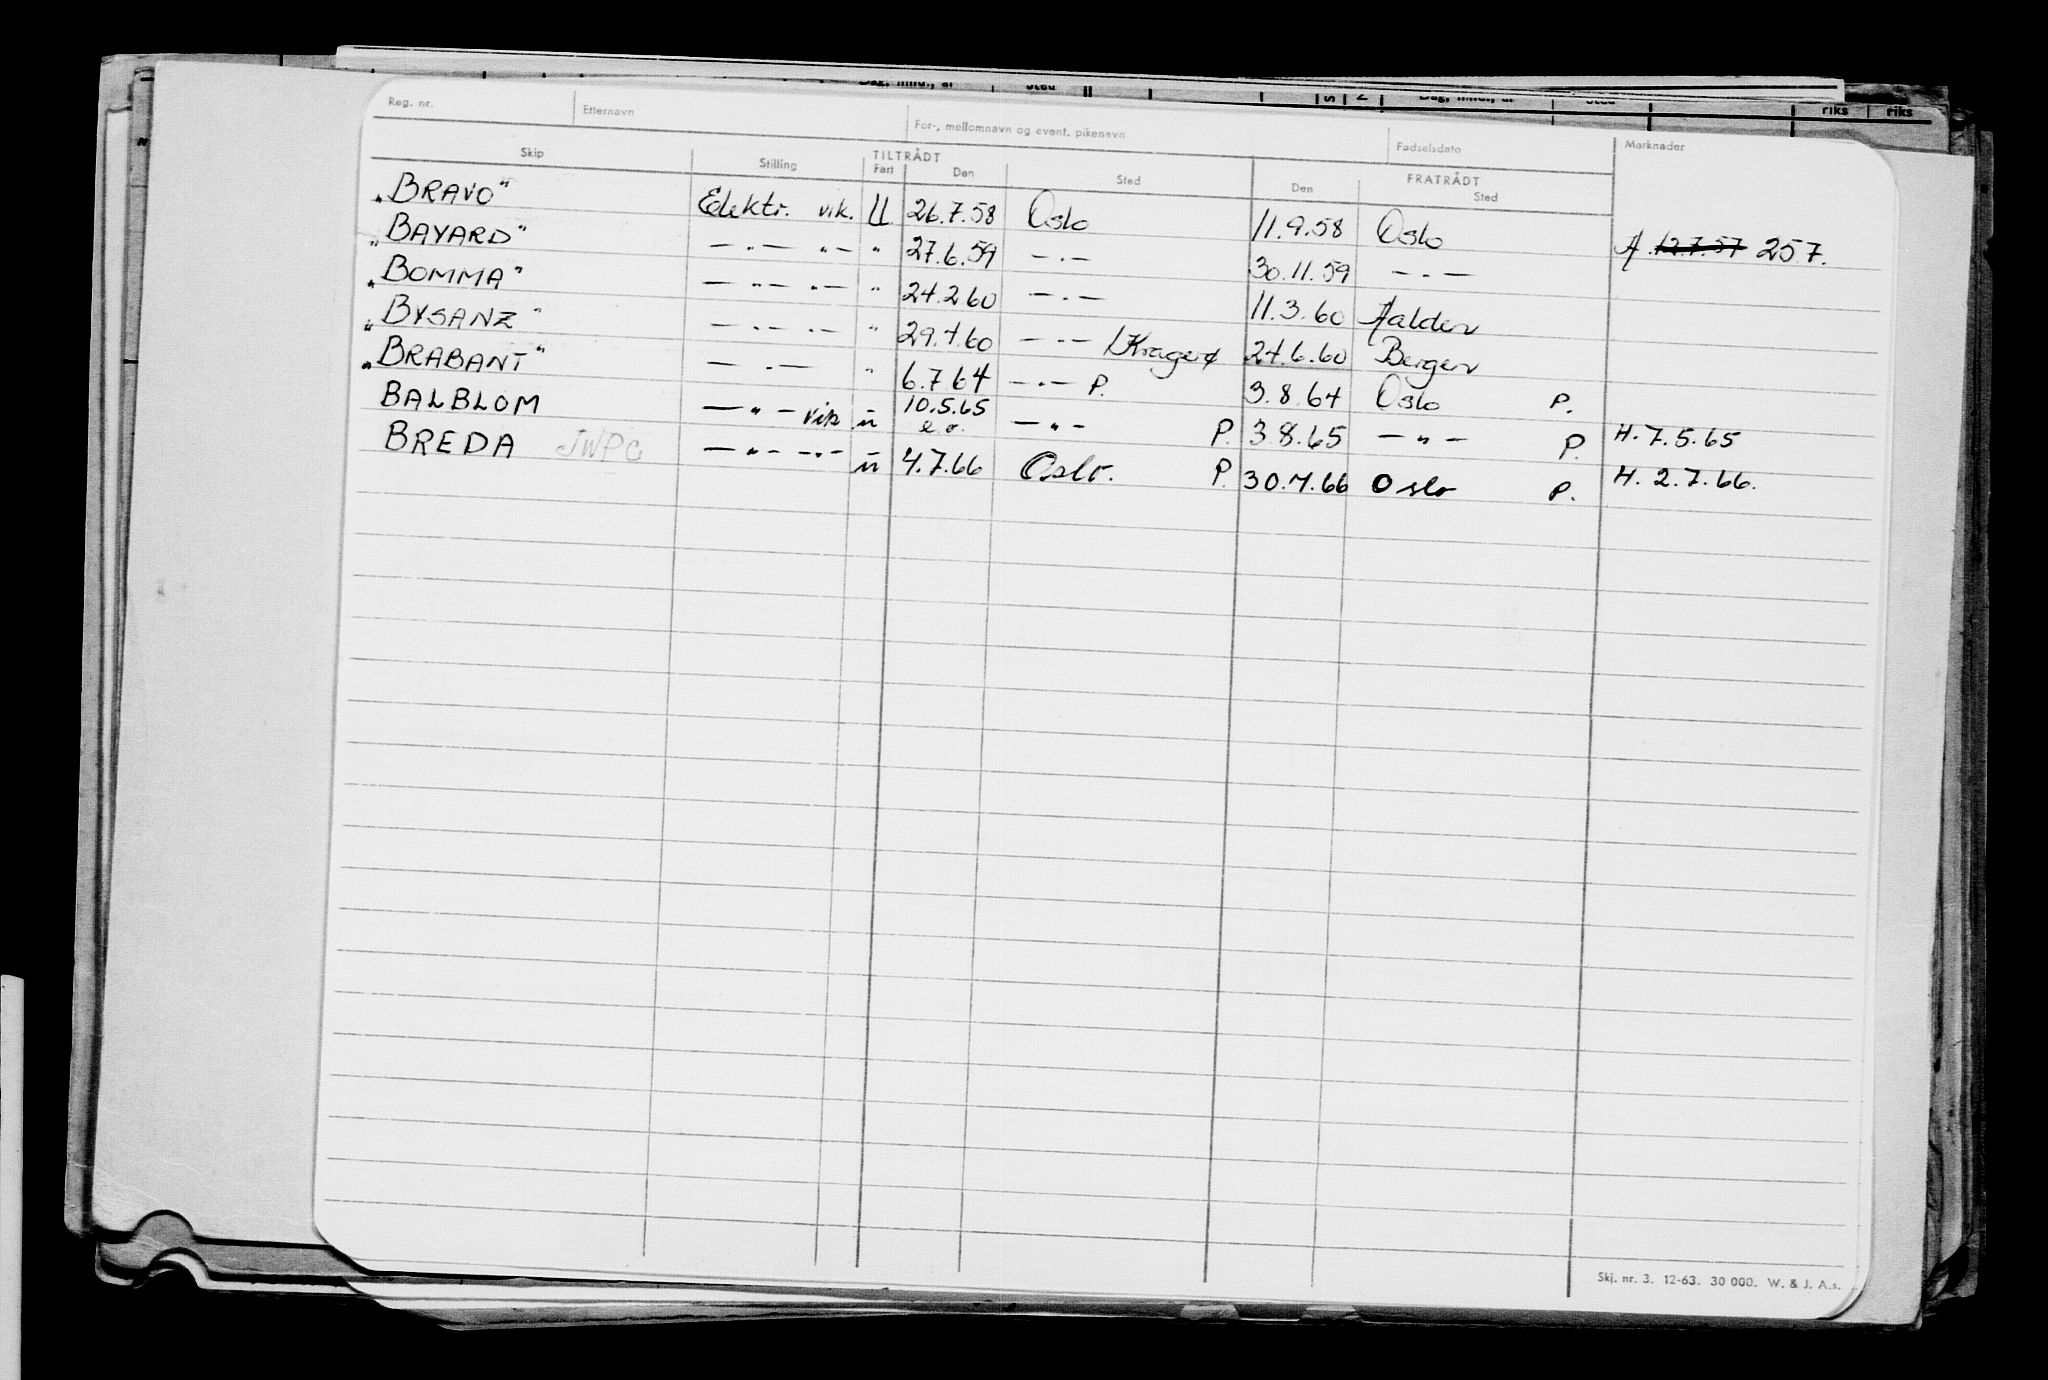 Reg. nr. Etternavn For-, mellomnavn og event. pikenavn Fødselsdato Marknader
Skip Stilling TILTRÅDT Fart Den Sted FRATRÅDT Den Sted
"BRAVO" Elektr. vik. U 26.7.58 Oslo 11.9.58 Oslo A. 12.7.57 25.7.
"BAYARD" — . — " — " 27.6.59 — . — 30.11.59 — . —
"BOMMA" — " — " — " 24.2.60 — . — 11.3.60 Halden
"BYSANZ" — . — . — " 29.4.60 — " — /Kragerø 24.6.60 Bergen
"BRABANT" — . — " 6.7.64 — . — P. 3.8.64 Oslo P.
BALBLOM — " — vik u 10.5.65 e.o. — " — P. 3.8.65 — " — P. H. 7.5.65
BREDA JWPC — " — " — u 4.7.66 Oslo. P. 30.7.66 Oslo P. H. 2.7.66.
Skj. nr. 3. 12-63. 30 000. W. & J. A.s.